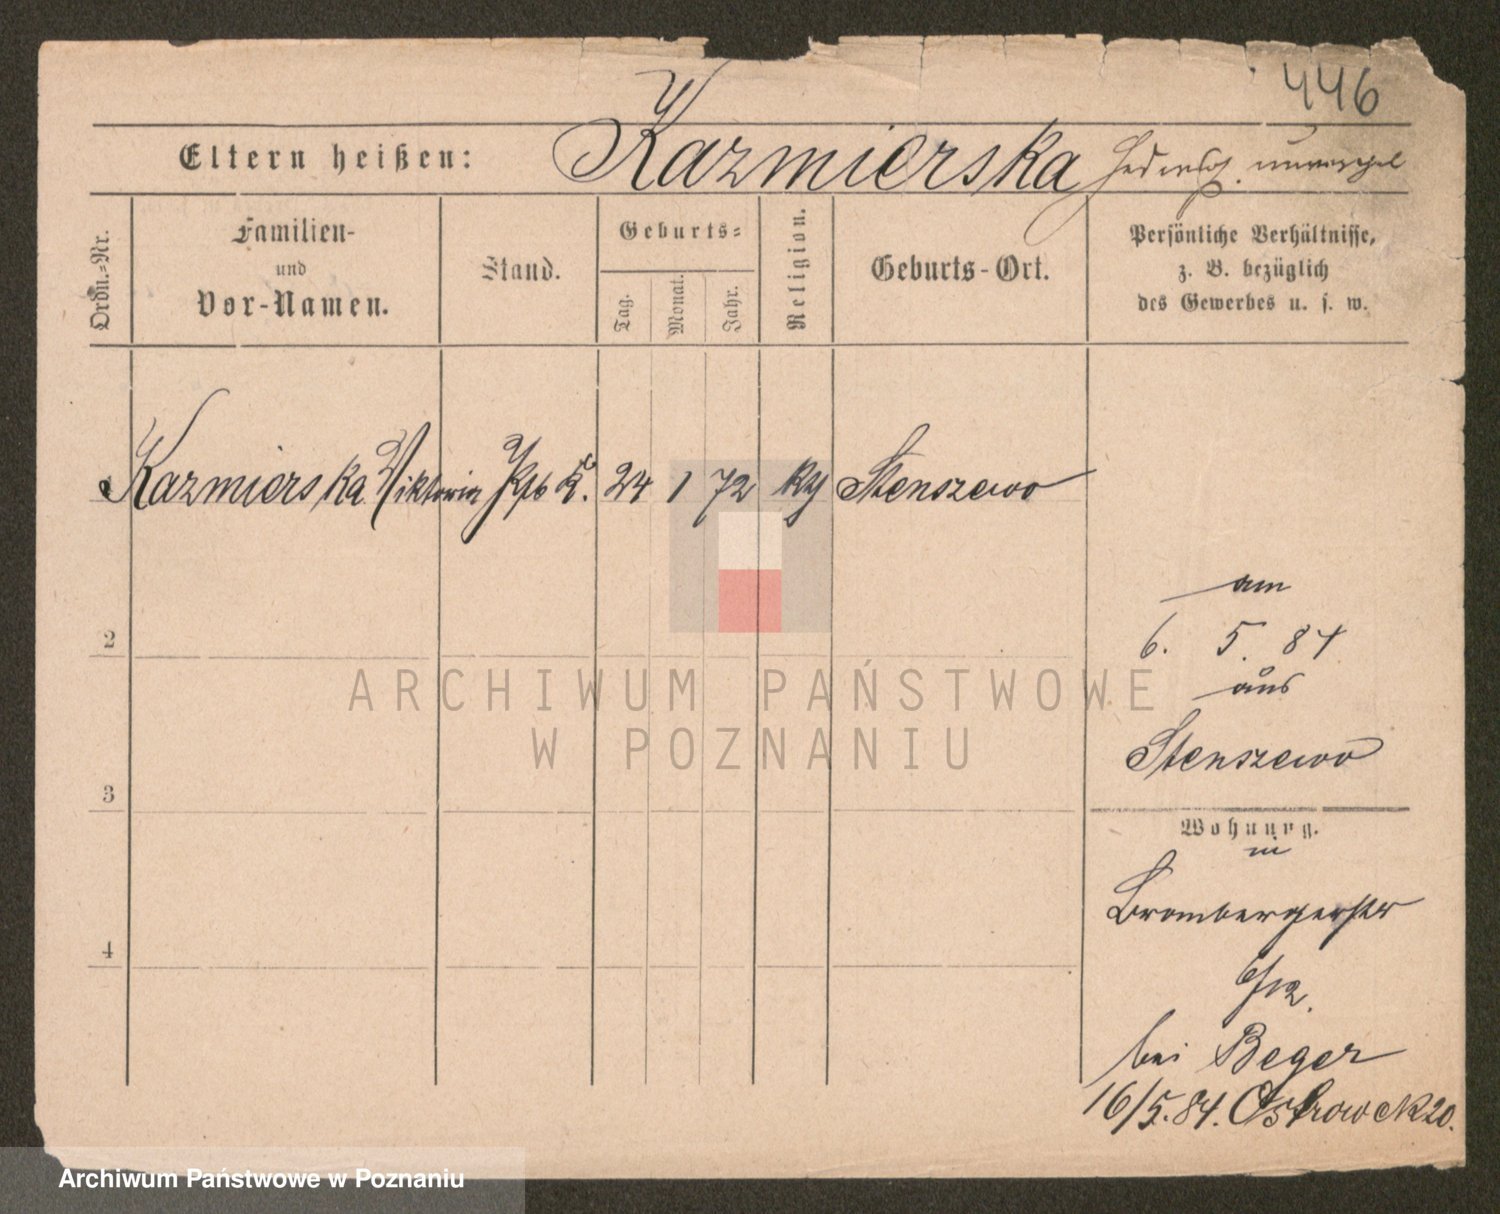 446
Eltern heißen: Kazmierska
Ordn.-Nr.
Familien-
und
Vor-Namen.
Stand.
Geburts-
Tag.
Monat.
Jahr.
Religion.
Geburts-Ort.
Persönliche Verhältnisse,
z. B. bezüglich
des Gewerbes u. s. w.
Kazmierska Viktoria 24 1 72 Stenszewo
am
6. 5. 84
aus
Stenszewo
2
3
4
Wohnung.
in
Brombergerstr
bei Beger
16/5.84. Ostrowek 20.
ARCHIWUM PAŃSTWOWE
W POZNANIU
Archiwum Państwowe w Poznaniu